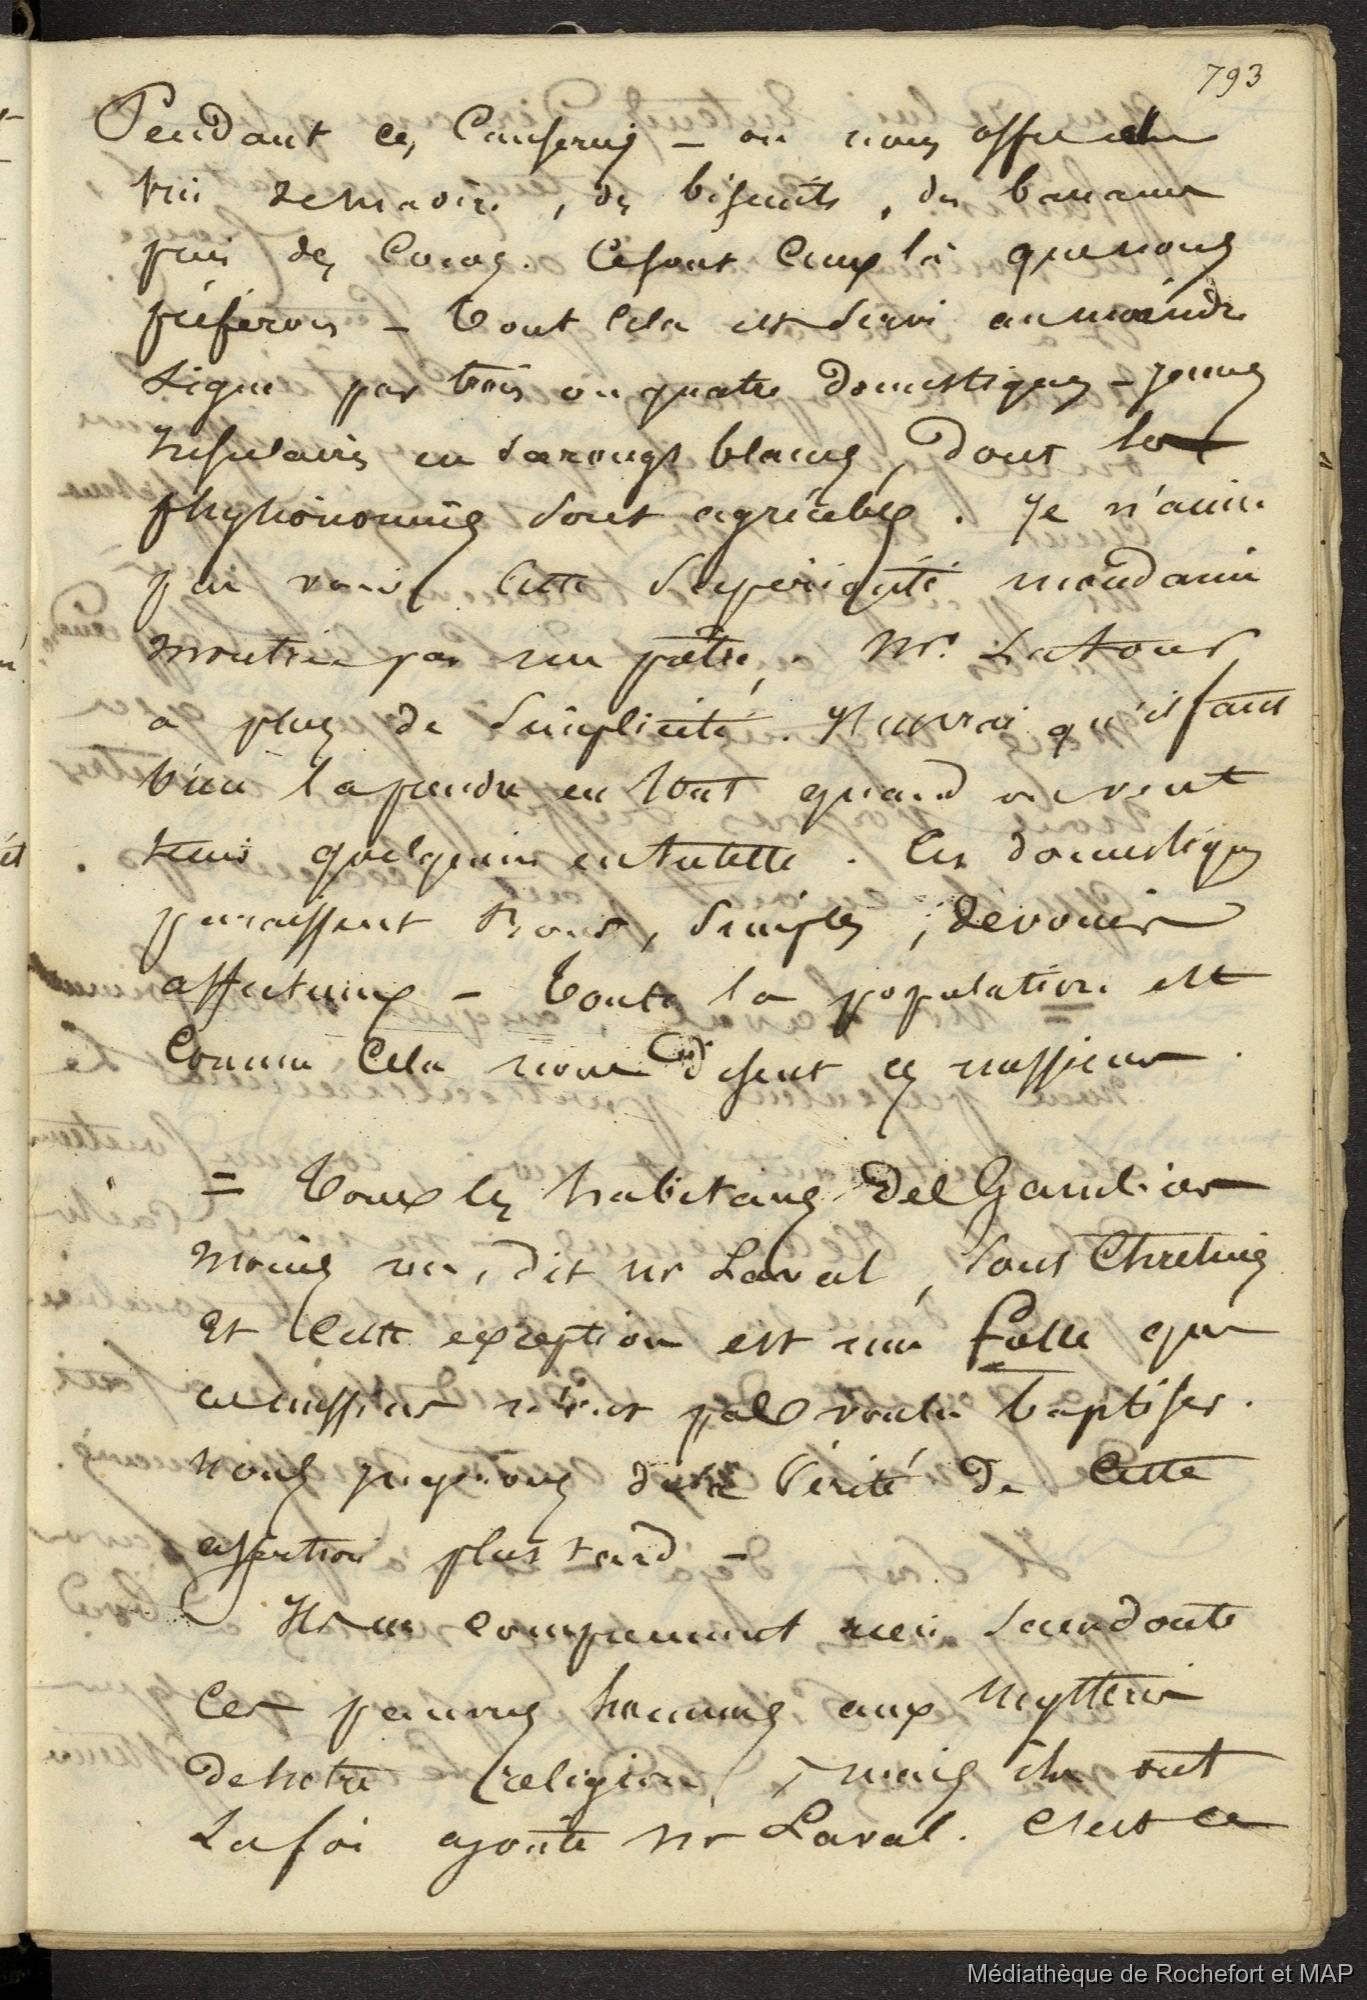 793
Pendant ces Causeries – on nous offre du
vin de madère, des biscuits, des bananes
puis des Cocos. Ce sont Ceux là que nous
préférons – Tout Cela est servi au moindre
signe par trois ou quatre domestiques – jeunes
insulaires en sarongs blancs, dont les
physionomies sont agréables. Je n'aime
pas voir Cette supériorité mondaine
montrée par un prêtre. Mr. Latour
a plus de simplicité. Il est vrai qu'il faut
bien la perdre en tout quand on veut
tenir quelqu'un en tutelle. Ces domestiques
paraissent bons, simples, dévoués
affectueux – Toute la population est
Comme Cela nous disent ces messieurs.
= Tous les habitans de Gambier
moins un, dit Mr Laval, sont Chretiens
Et Cette exception est une folle que
ces messieurs n'ont pas voulu baptiser.
Nous jugerons de la Vérité de Cette
assertion plus tard –
Ils ne comprennent rien sans doute
Ces pauvres hommes aux Mystères
de notre religion, mais ils ont
La foi ajoute Mr Laval. C'est ce
Médiathèque de Rochefort et MAP